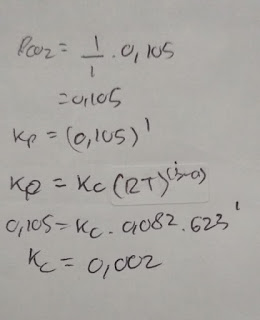 PCO2 = 1/1 . 0,105
= 0,105
Kp = (0,105)¹
Kp = Kc (RT)^(1-0)
0,105 = Kc . 0,082 . 623¹
Kc = 0,002